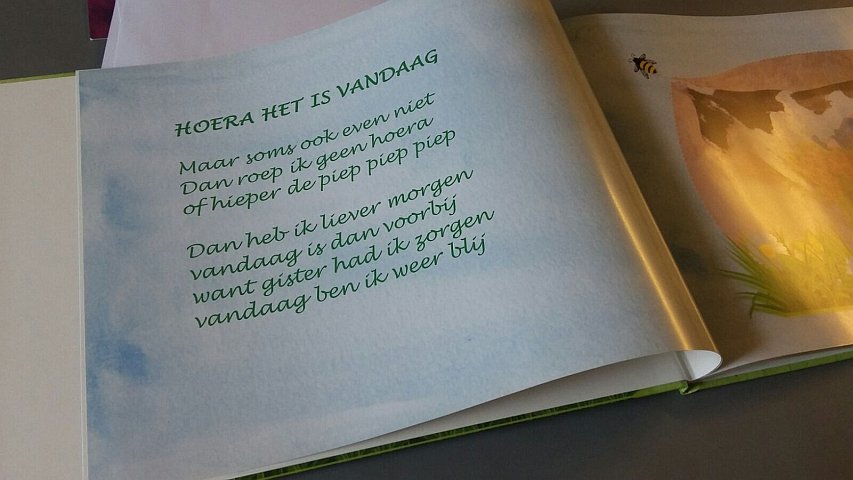 HOERA HET IS VANDAAG
Maar soms ook even niet
Dan roep ik geen hoera
of hieper de piep piep piep
Dan heb ik liever morgen
vandaag is dan voorbij
want gister had ik zorgen
vandaag ben ik weer blij